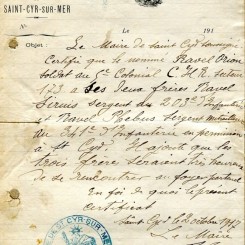 SAINT-CYR-SUR-MER
Le 191
Objet :
Le Maire de Saint Cyr soussigné
Certifie que le nommé Ravel
soldat au 5e Colonial C.H.R. secteur
173 a ses deux frères Ravel
Sirius sergent au 203e d'Infanterie
et Ravel Phébus sergent
au 341e d'Infanterie en permission
à St Cyr. Il ajoute que les
trois frères seraient très heureux
de se rencontrer au foyer paternel
En foi de quoi le présent
certificat
Saint Cyr le 2 octobre 1917
Le Maire
ST CYR-SUR-MER